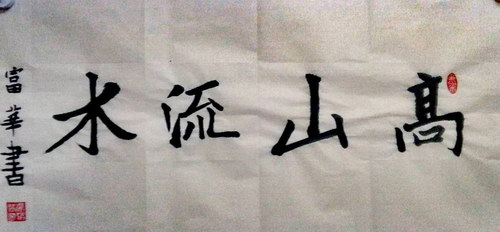 髙山流水
富華書